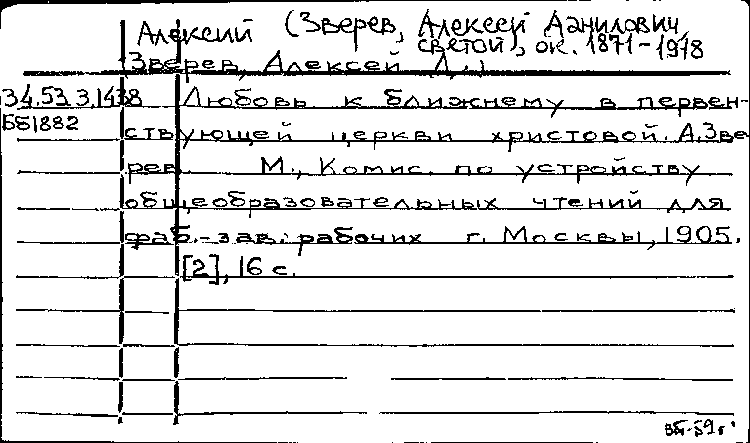 Алексий (Зверев, Алексей Данилович,
святой), ок. 1871-1918
Зверев, Алексей Д.
34.53.3.1438 Любовь к ближнему в первен-
Бб1882 ствующей церкви христовой. А.Зве-
рев. М., Комис. по устройству
общеобразовательных чтений для
фаб.-зав. рабочих г. Москвы, 1905.
[2], 16 с.